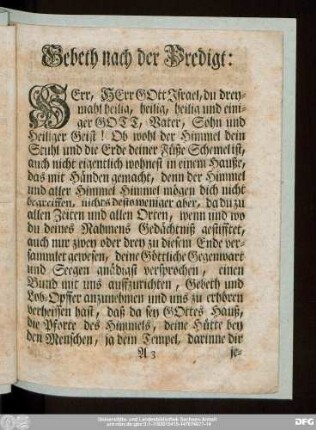 Gebeth nach der Predigt:
HErr, HErr GOtt Israel, du drey-
mahl heilig, heilig, heilig und eini-
ger GOTT, Vater, Sohn und
Heiliger Geist! Ob wohl der Himmel dein
Stuhl und die Erde deiner Füße Schemel ist,
auch nicht eigentlich wohnest in einem Hauße,
das mit Händen gemacht, denn der Himmel
und aller Himmel Himmel mögen dich nicht
begreiffen, nichts destoweniger aber, da du zu
allen Zeiten und allen Orten, wenn und wo
du deines Nahmens Gedächtniß gestifftet,
auch nur zwey oder drey zu diesem Ende ver-
sammlet gewesen, deine Göttliche Gegenwart
und Seegen gnädigst versprochen, einen
Bund mit uns auffzurichten, Gebeth und
Lob-Opffer anzunehmen und uns zu erhören
verheissen hast, daß da sey GOttes Hauß,
die Pforte des Himmels, deine Hütte bey
den Menschen, ja dem Tempel, darinne dir
A 3 je-
Universitäts- und Landesbibliothek Sachsen-Anhalt
DFG